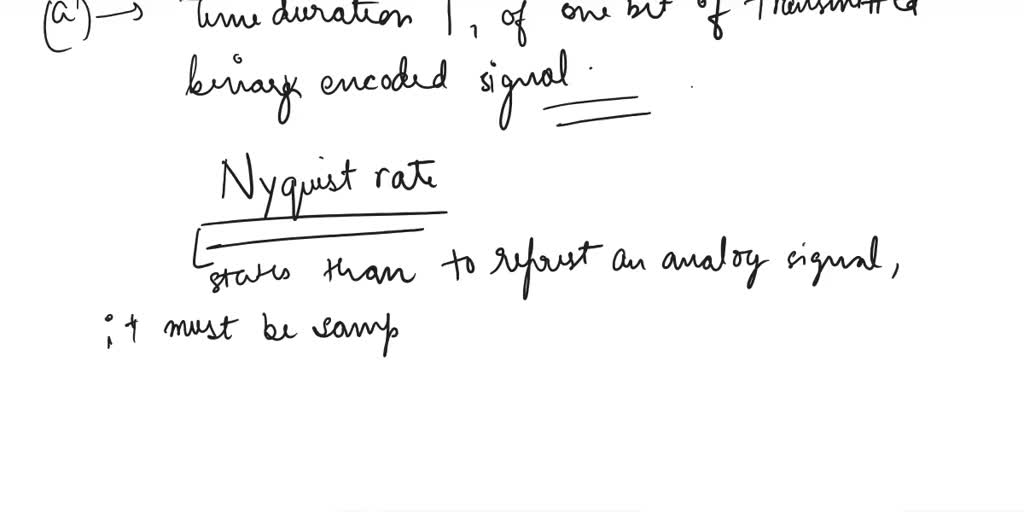 (a) → Time duration T, of one bit of Transmitted
binary encoded signal.
Nyquist rate
states than to reprust an analog signal,
it must be samp